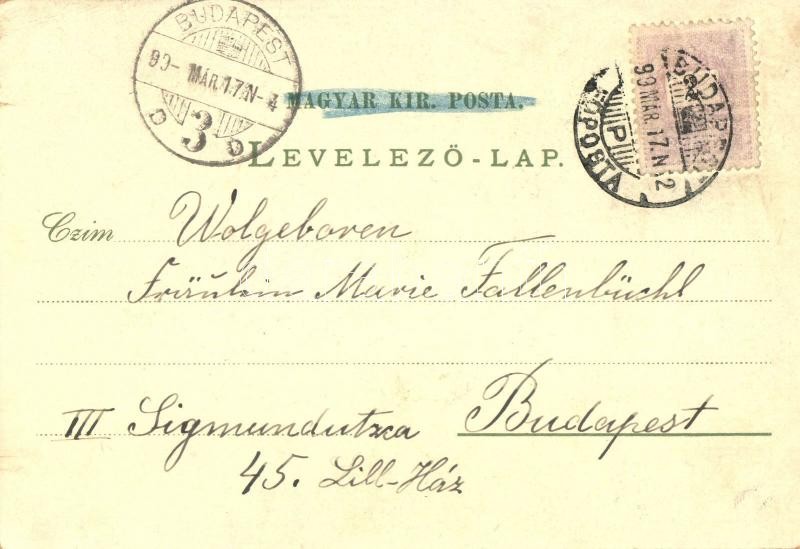 BUDAPEST
99- MÁR.17.N-4
3
MAGYAR KIR. POSTA.
LEVELEZŐ-LAP.
BUDAPEST
99 MÁR.17.N 12
FŐPOSTA
Czim Wolgeboren
Fräulein Marie Fallenbüchl
III Sigmundutzca Budapest
45. Lill-Ház